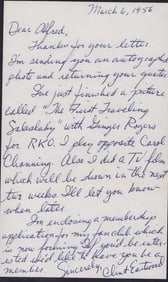 March 6, 1956
Dear Alfred,
Thanks for your letter.
I'm sending you an autographed
photo and returning your quotes.
I've just finished a picture
called "The First Traveling
Saleslady" with Ginger Rogers
for RKO. I play opposite Carol
Channing. Also I did a TV film
which will be shown in the next
two weeks. I'll let you know
when later.
I'm enclosing a membership
application for my fan club which
is now forming. If you'd be inter-
ested we'd like to have you be a
member.
Sincerely,
Clint Eastwood